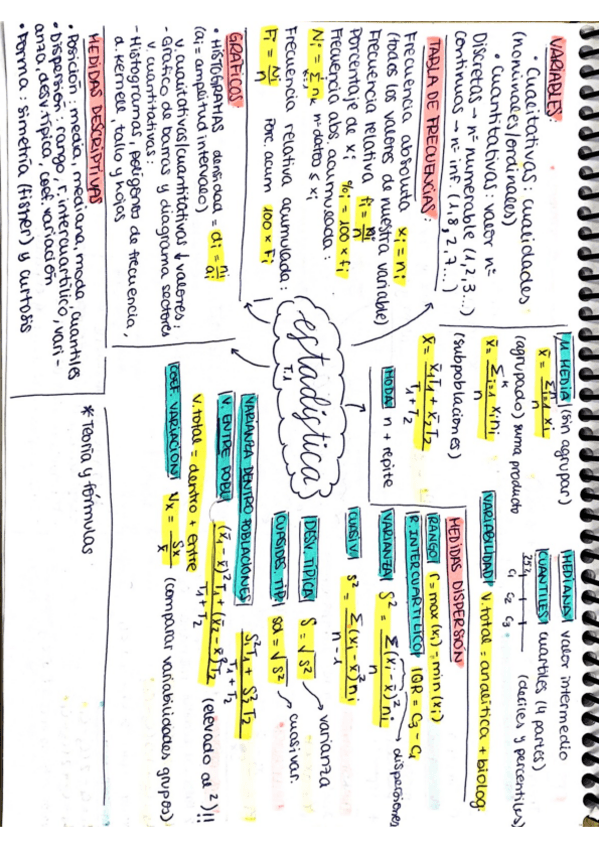 VARIABLES:
• Cualitativas: cualidades
(nominales/ordinales)
• Cuantitativas: valor nº
Discretas → nº numerable (1,2,3...)
continuas → nº inf. (1,8,2,7...)
TABLA DE FRECUENCIAS:
Frecuencia absoluta xi = ni
(todos los valores de nuestra variable)
Frecuencia relativa fi = ni/n
Porcentaje de xi %i = 100 x fi
Frecuencia abs. acumulada:
Ni = Σ nk n=datos ≤ xi
Frecuencia relativa acumulada:
Fi = Ni/n Porc. acum 100 x Fi
GRÁFICOS
• HISTOGRAMAS densidad = di = ni/ai
(ai = amplitud intervalo)
v. cualitativas/cuantitativas ↓ valores:
- Gráfico de barras y diagrama sectores
v. cuantitativas:
- Histogramas, polígono de frecuencia,
d. Kernell, tallo y hojas
MEDIDAS DESCRIPTIVAS
• Posición: media, mediana, moda, cuantiles
• Dispersión: rango, r. intercuartílico, vari-
anza, desv. típica, coef. variación
• Forma: simetría (fisher) y curtosis
estadística
T.1
μ MEDIA (sin agrupar)
x̄ = Σⁿi=1 xi / n
(agrupado) suma producto
x̄ = Σᵏi=1 xi ni / n
(subpoblaciones)
x̄ = x̄1T1 + x̄2T2 / T1+T2
MODA n + repite
MEDIANA valor intermedio
CUANTILES cuartiles (4 partes)
25% C1 C2 C3 (deciles y percentiles)
VARIABILIDAD v. total = analítica + biolog.
MEDIDAS DISPERSIÓN
RANGO r = max (xi) - min (xi)
R. INTERCUARTILICO IQR = C3 - C1
VARIANZA S² = Σ(xi - x̄)² ni / n → dispersiones
CUASIV. s² = Σ(xi - x̄)² ni / n - 1
DESV. TÍPICA S = √S² → varianza
CUASIDES. TÍP. sd = √s² → cuasivar.
VARIANZA DENTRO POBLACIONES S1²T1 + S2²T2 / T1+T2
V. ENTRE POBL. (x̄1 - x̄)²T1 + (x̄2 - x̄)²T2 / T1+T2 (elevado al ²)!!
v. total = dentro + entre
COEF. VARIACIÓN Vx = Sx/x̄ (comparar variabilidades grupos)
* Teoría y fórmulas